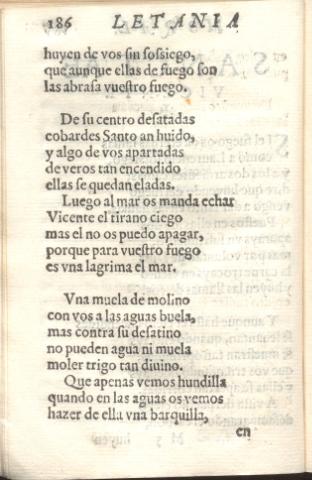 186 LETANIA
huyen de vos sin sossiego,
que aunque ellas de fuego son
las abrasa vuestro fuego.
De su centro desatadas
cobardes Santo an huido,
y algo de vos apartadas
de veros tan encendido
ellas se quedan eladas.
Luego al mar os manda echar
Vicente el tirano ciego
mas el no os puedo apagar,
porque para vuestro fuego
es vna lagrima el mar.
Vna muela de molino
con vos a las aguas buela,
mas contra su desatino
no pueden agua ni muela
moler trigo tan diuino.
Que apenas vemos hundilla
quando en las aguas os vemos
hazer de ella vna barquilla,
en